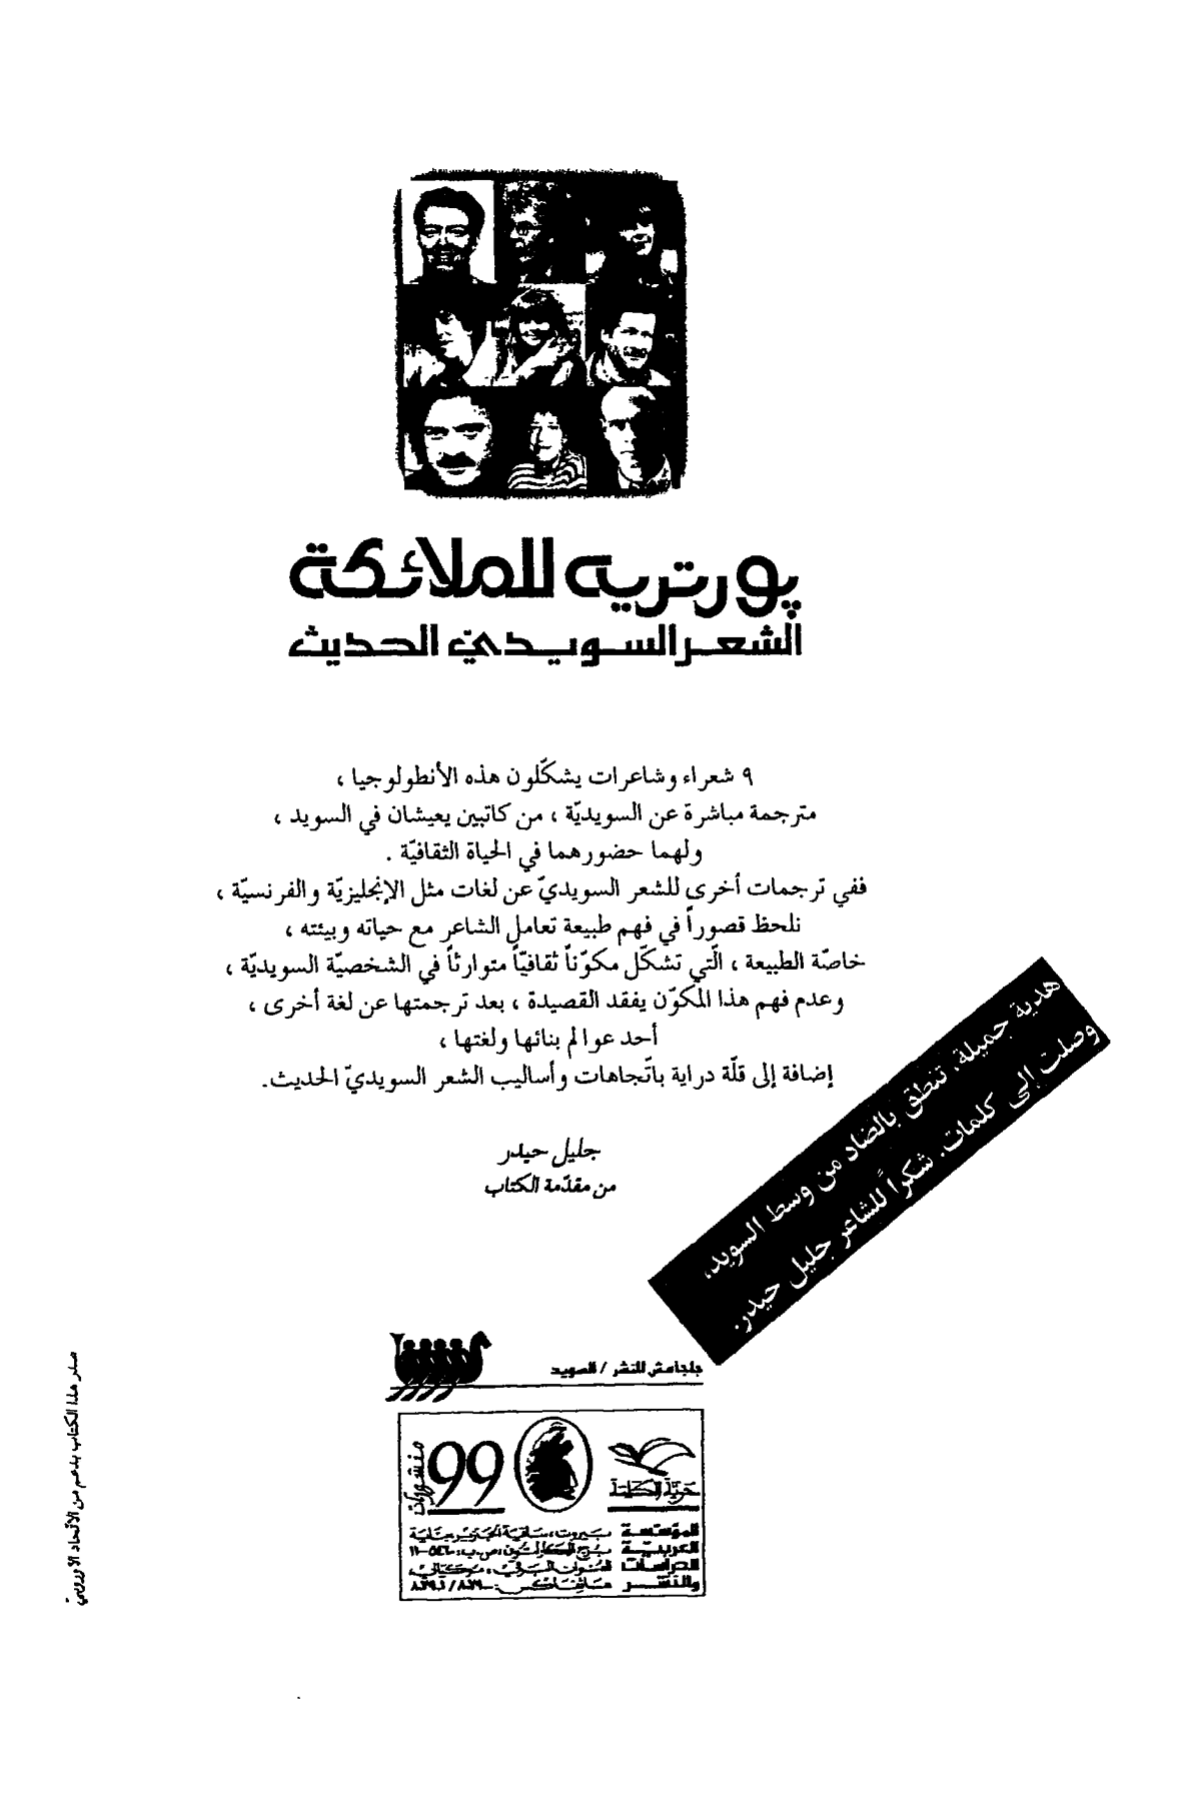 پورتريه للملائكة
الشعر السويديّ الحديث
٩ شعراء وشاعرات يشكّلون هذه الأنطولوجيا ،
مترجمة مباشرة عن السويديّة ، من كاتبين يعيشان في السويد ،
ولهما حضورهما في الحياة الثقافيّة .
ففي ترجمات أخرى للشعر السويديّ عن لغات مثل الإنجليزيّة والفرنسيّة ،
نلحظ قصوراً في فهم طبيعة تعامل الشاعر مع حياته وبيئته ،
خاصّة الطبيعة ، الّتي تشكّل مكوّناً ثقافيّاً متوارثاً في الشخصيّة السويديّة ،
وعدم فهم هذا المكوّن يفقد القصيدة ، بعد ترجمتها عن لغة أخرى ،
أحد عوالم بنائها ولغتها ،
إضافة إلى قلّة دراية باتّجاهات وأساليب الشعر السويديّ الحديث.
جليل حيدر
من مقدّمة الكتاب
هدية جميلة، تنطق بالضاد من وسط السويد،
وصلت إلى كلمات. شكراً للشاعر جليل حيدر.
جلجامش للنشر / السويد
منشورات 99
حريّة الكلمة
المؤسسة بيروت، ساقية الجنزير، بناية
العربية برج الكارلتون، ص.ب: ٥٤٦٠-١١
للدراسات العنوان البرقي، موكيالي،
والنشر هاتفاكس:
صدر هذا الكتاب بدعم من الاتّحاد الأوروبيّ